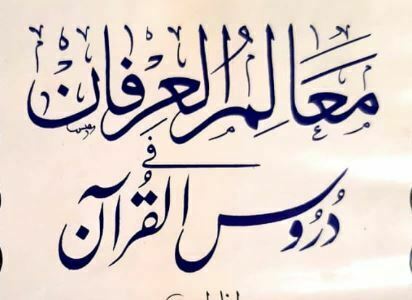 مَعَالِمُ العِرفَان
فی
دُرُوس القُرآن